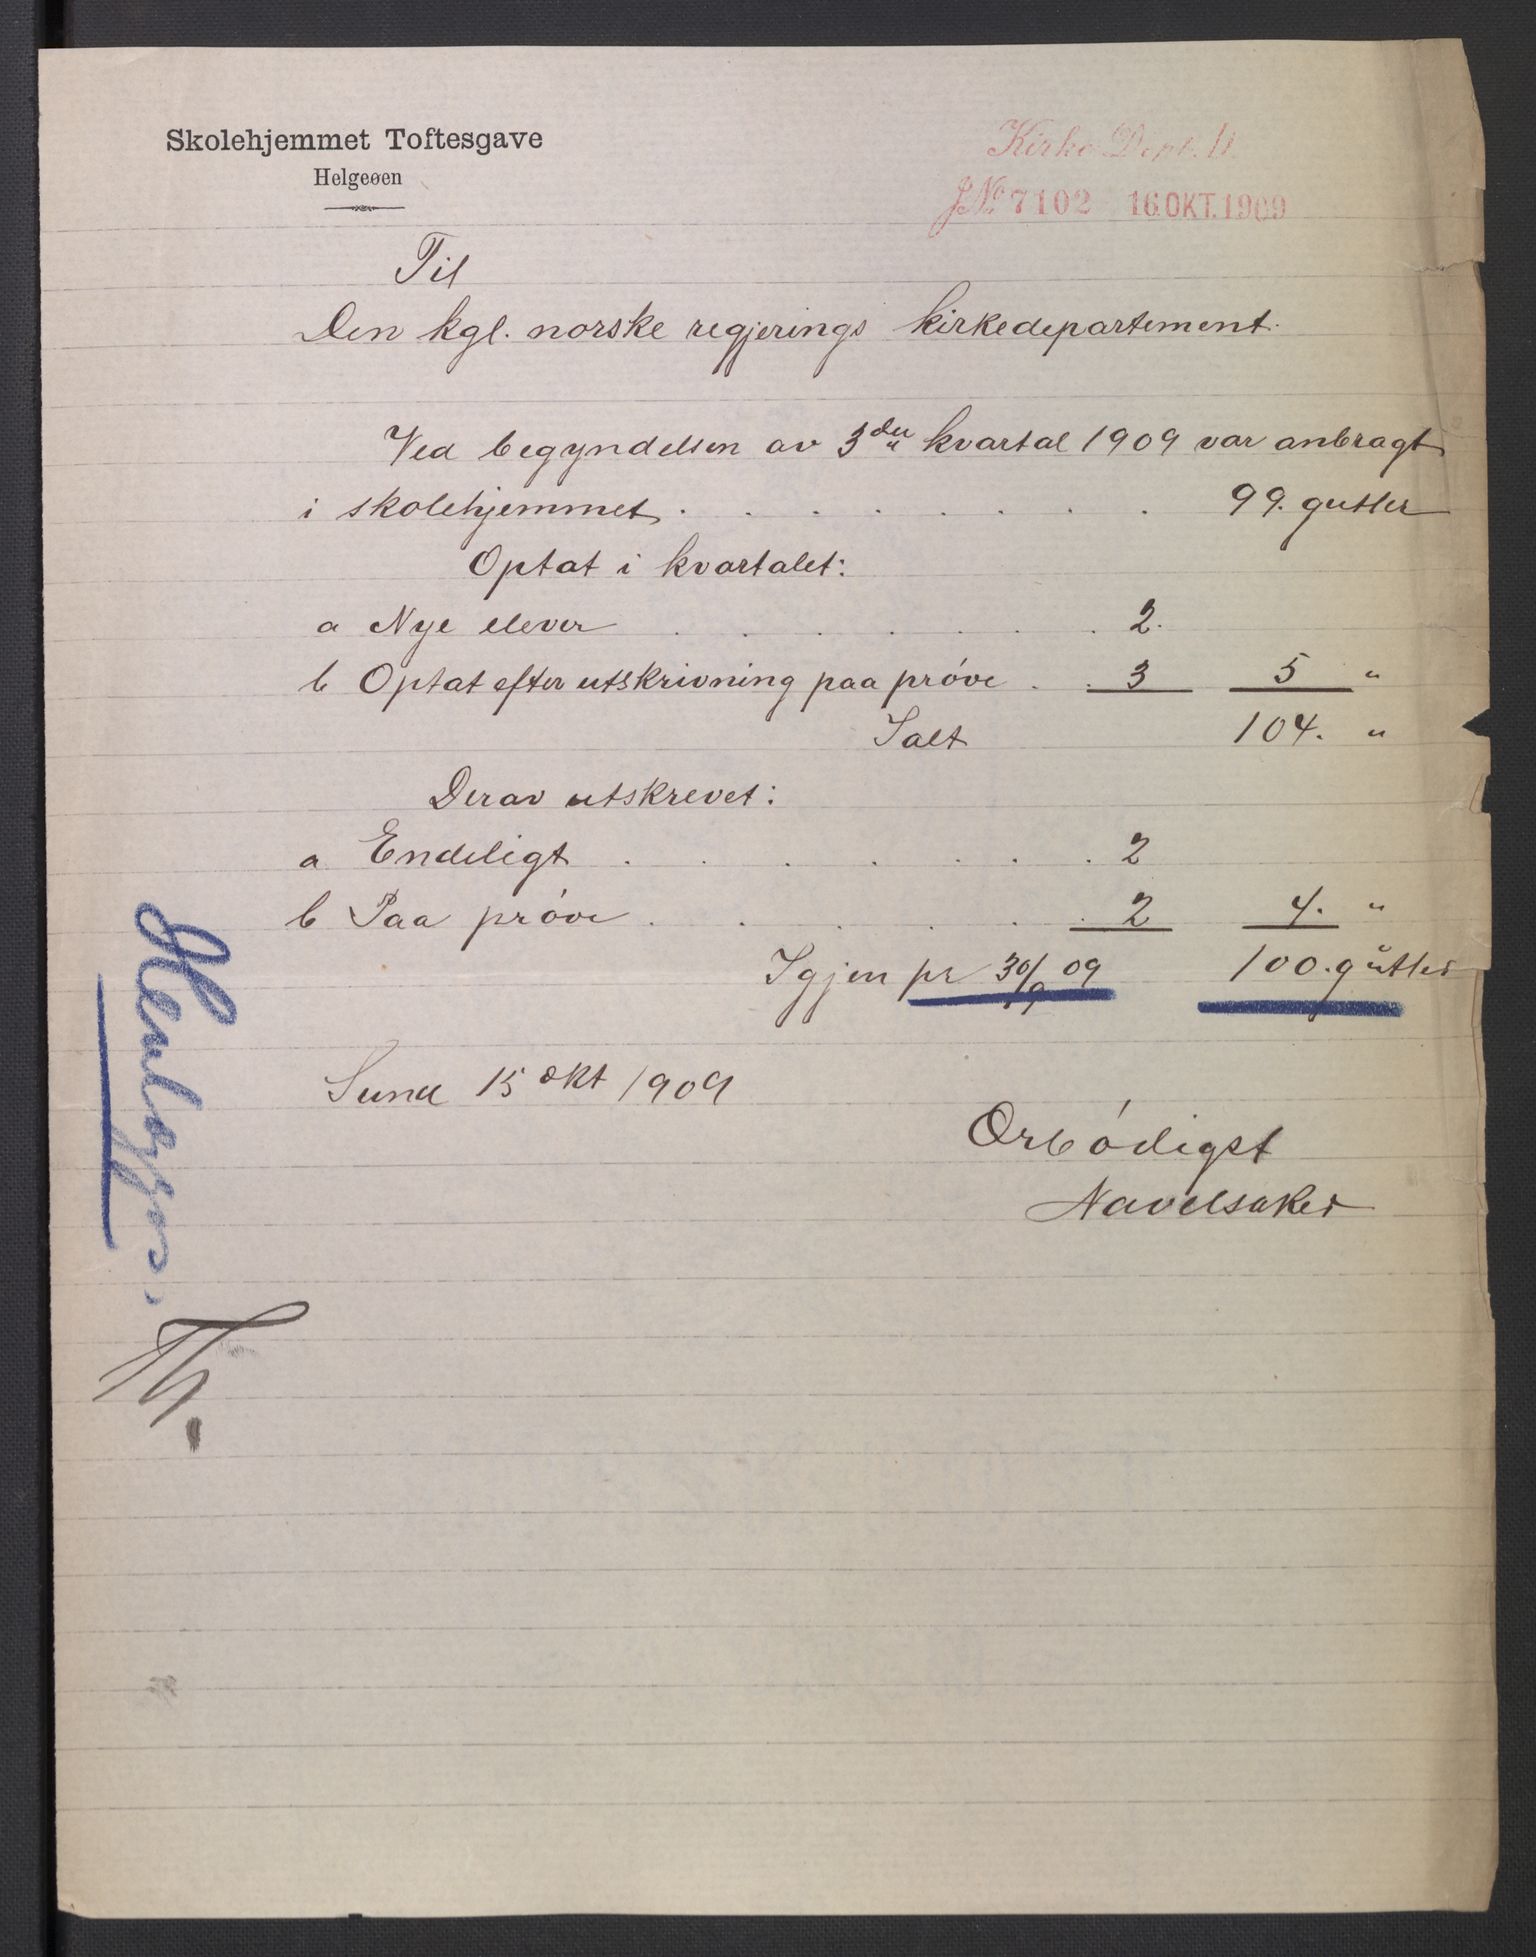 Skolehjemmet Toftesgave
Helgeøen
Kirke Dept. B.
J№ 7102 16.OKT.1909
Til
Den kgl. norske regjerings kirkedepartement.
Ved begyndelsen av 3die kvartal 1909 var anbragt
i skolehjemmet . . . . . . . . 99. gutter
Optat i kvartalet:
a Nye elever . . . . . . . 2.
b Optat efter utskrivning paa próve . . 3 5 "
Ialt 104. "
Derav utskrevet:
a Endeligt . . . . . . . 2
b Paa próve . . . . . . 2 4. "
Igjen pr 30/9 09 100. gutter
Sund 15 okt 1909
Ærbódigst
Navelsaker
Henlægges.
Th.